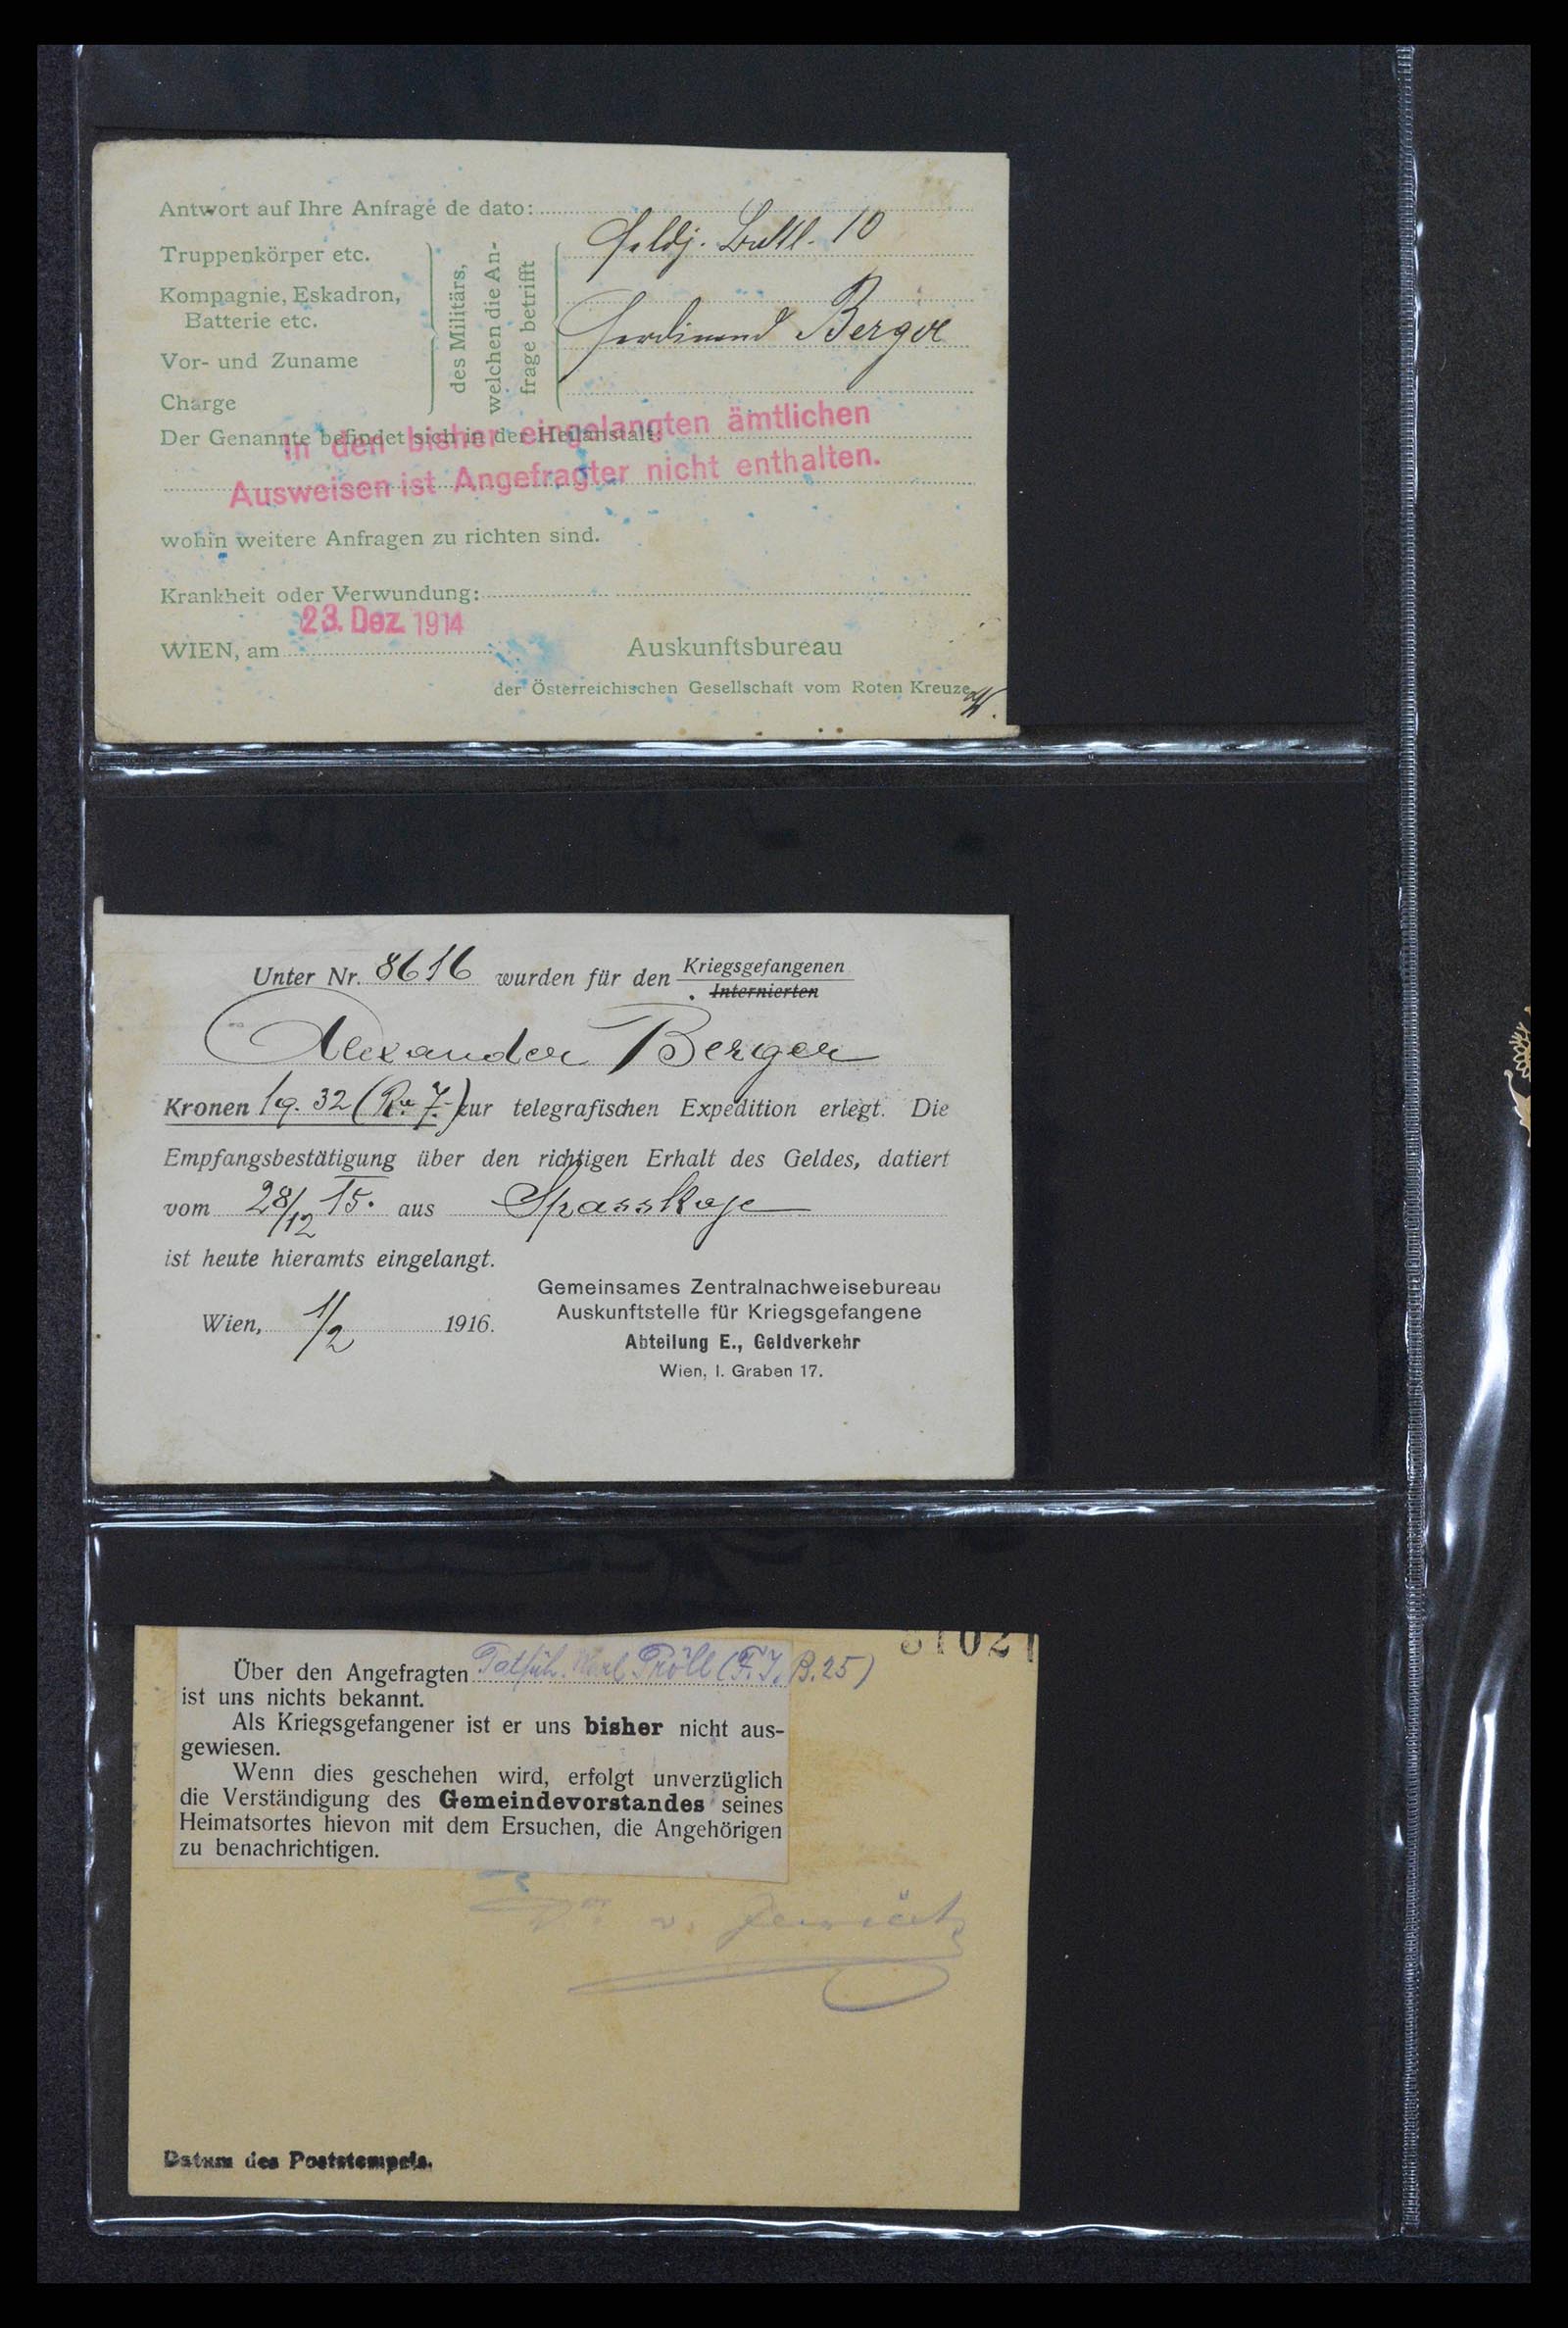 Antwort auf Ihre Anfrage de dato:
Truppenkörper etc.
Feldj. Batll. 10
Kompagnie, Eskadron,
Batterie etc.
des Militärs,
welchen die An-
frage betrifft
Vor- und Zuname
Ferdinand Berger
Charge
Der Genannte befindet sich in der Heilanstalt:
In den bisher eingelangten ämtlichen
Ausweisen ist Angefragter nicht enthalten.
wohin weitere Anfragen zu richten sind.
Krankheit oder Verwundung:
23. Dez. 1914
WIEN, am
Auskunftsbureau
der Österreichischen Gesellschaft vom Roten Kreuze
Unter Nr. 8616 wurden für den Kriegsgefangenen
Internierten
Alexander Berger
Kronen 19.32 (Ru 7.-) zur telegrafischen Expedition erlegt. Die
Empfangsbestätigung über den richtigen Erhalt des Geldes, datiert
vom 28/12 15. aus Spasskoje
ist heute hieramts eingelangt.
Wien, 1/2 1916.
Gemeinsames Zentralnachweisebureau
Auskunftstelle für Kriegsgefangene
Abteilung E., Geldverkehr
Wien, I. Graben 17.
Über den Angefragten Pröll (F.J.B.25)
ist uns nichts bekannt.
Als Kriegsgefangener ist er uns bisher nicht aus-
gewiesen.
Wenn dies geschehen wird, erfolgt unverzüglich
die Verständigung des Gemeindevorstandes seines
Heimatsortes hievon mit dem Ersuchen, die Angehörigen
zu benachrichtigen.
Datum des Poststempels.